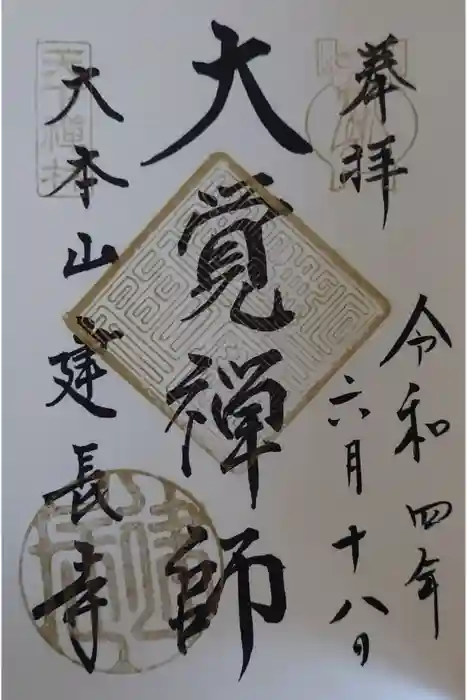 奉拝
令和四年
六月十八日
大覚禅師
大本山建長寺